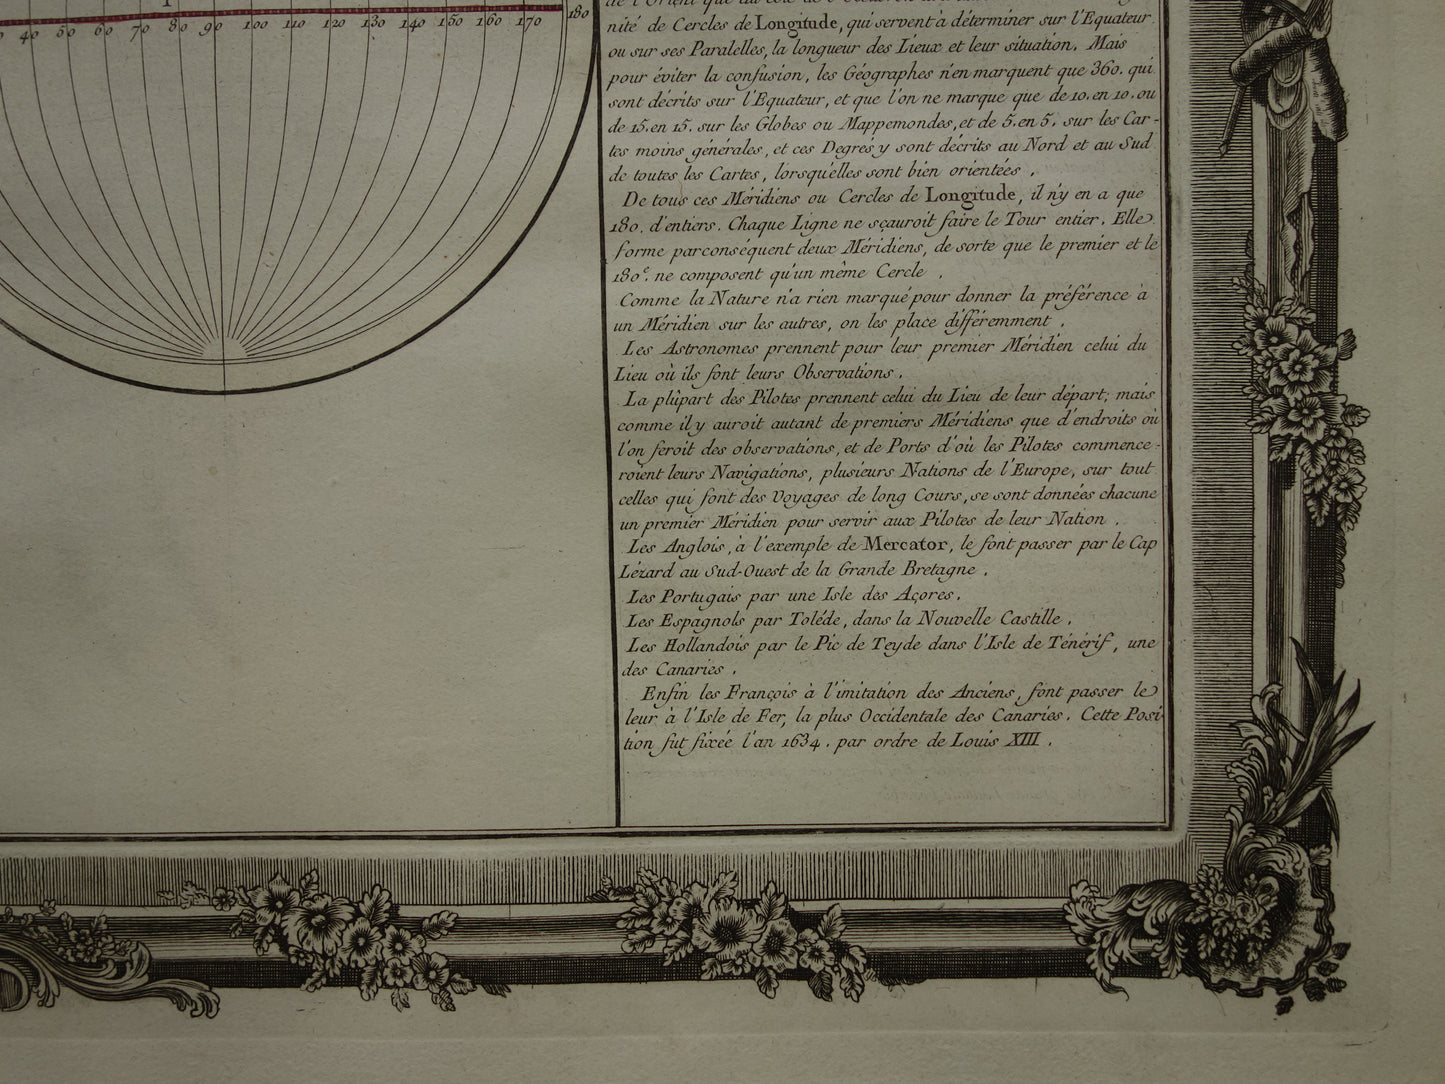 40 50 60 70 80 90 100 110 120 130 140 150 160 170 180
de l'Orient que du côté de l'Occident
nité de Cercles de Longitude, qui servent à déterminer sur l'Equateur
ou sur ses Paralelles, la longueur des Lieux et leur situation. Mais
pour éviter la confusion, les Géographes n'en marquent que 360. qui
sont décrits sur l'Equateur, et que l'on ne marque que de 10. en 10. ou
de 15. en 15. sur les Globes ou Mappemondes, et de 5. en 5. sur les Car-
tes moins générales, et ces Degrés y sont décrits au Nord et au Sud
de toutes les Cartes, lorsqu'elles sont bien orientées.
De tous ces Méridiens ou Cercles de Longitude, il n'y en a que
180. d'entiers. Chaque Ligne ne sçauroit faire le Tour entier. Elle
forme par conséquent deux Méridiens, de sorte que le premier et le
180e. ne composent qu'un même Cercle.
Comme la Nature n'a rien marqué pour donner la préférence à
un Méridien sur les autres, on les place différemment.
Les Astronomes prennent pour leur premier Méridien celui du
Lieu où ils font leurs Observations.
La plûpart des Pilotes prennent celui du Lieu de leur départ; mais
comme il y auroit autant de premiers Méridiens que d'endroits où
l'on feroit des observations, et de Ports d'où les Pilotes commence-
roient leurs Navigations, plusieurs Nations de l'Europe, sur tout
celles qui font des Voyages de long Cours, se sont données chacune
un premier Méridien pour servir aux Pilotes de leur Nation.
Les Anglois, à l'exemple de Mercator, le font passer par le Cap
Lézard au Sud-Ouest de la Grande Bretagne.
Les Portugais par une Isle des Açores.
Les Espagnols par Toléde, dans la Nouvelle Castille.
Les Hollandois par le Pic de Teyde dans l'Isle de Ténérif, une
des Canaries.
Enfin les François à l'imitation des Anciens, font passer le
leur à l'Isle de Fer, la plus Occidentale des Canaries. Cette Posi-
tion fut fixée l'an 1634. par ordre de Louis XIII.